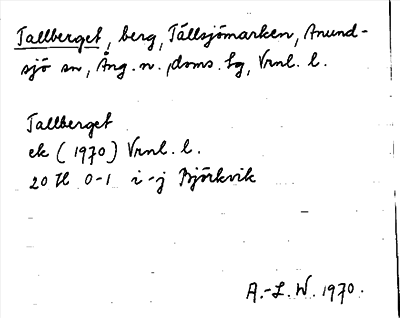 Tallberget, berg, Tällsjömarken, Anund-
sjö sn, Ång. n. doms. tg, Vrnl. l.
Tallberget
ek (1970) Vrnl. l.
20 H 0-1 i-j Björkvik
A.-L. W. 1970.